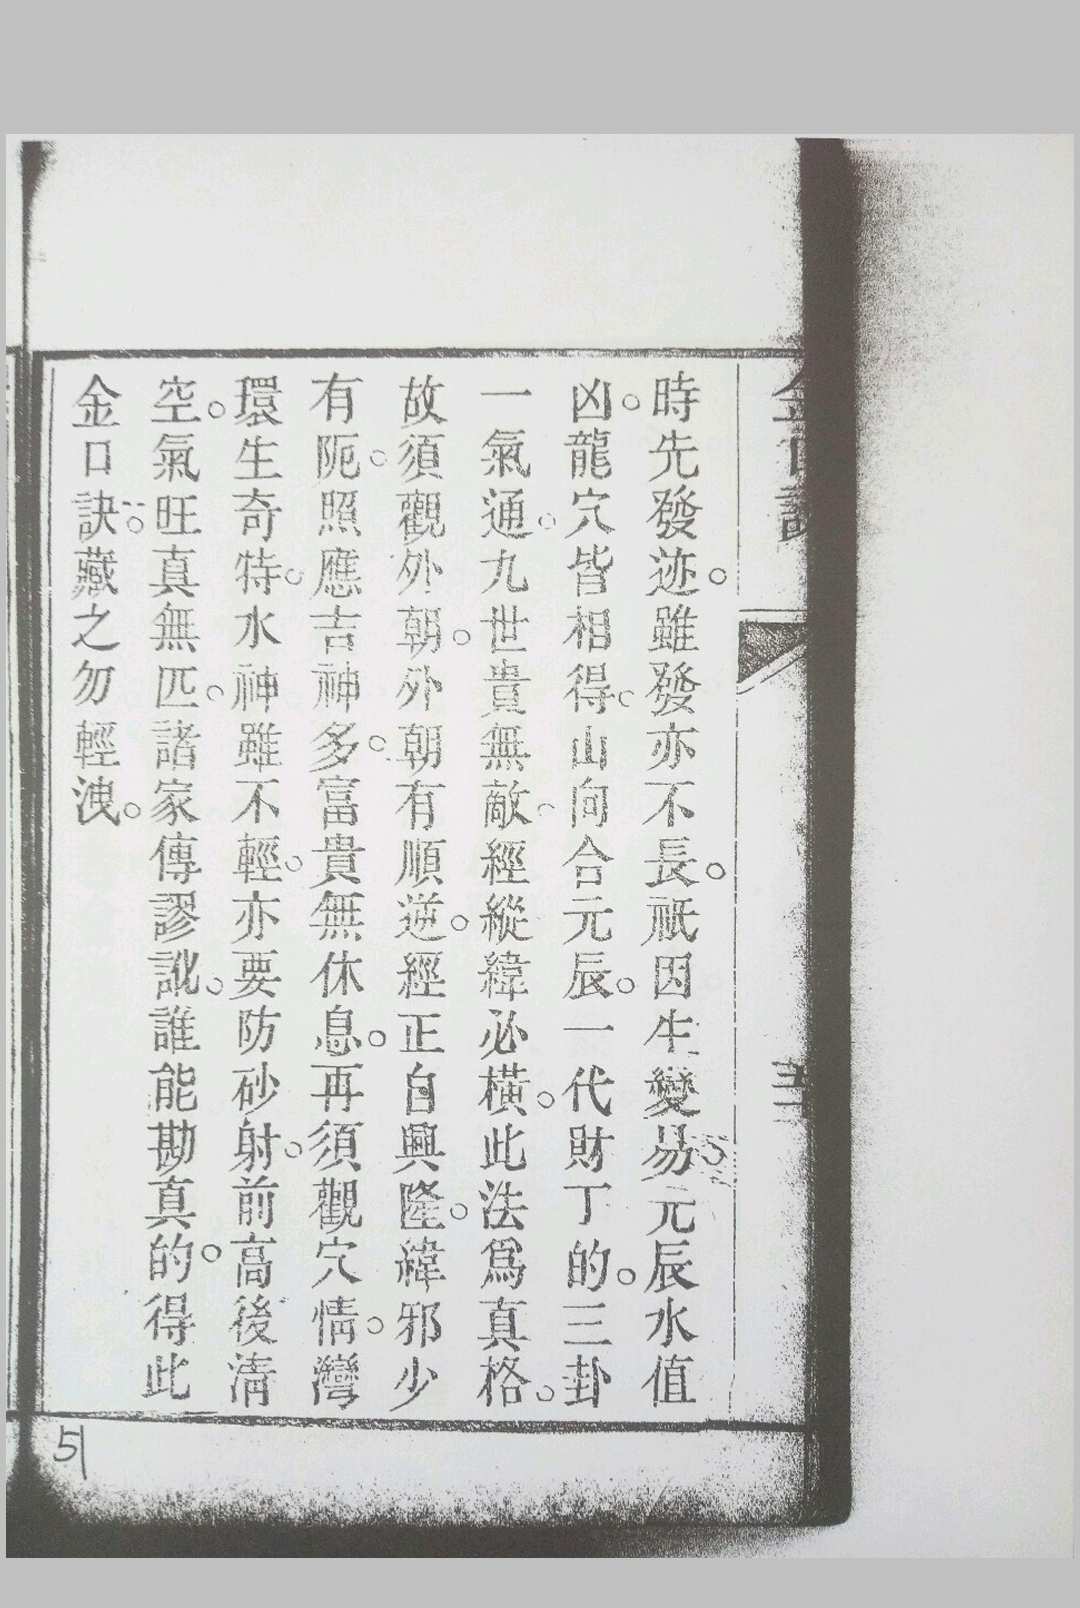 時先發迹。雖發亦不長。祇因生變易。元辰水值
凶。龍穴皆相得。山向合元辰。一代財丁的。三卦
一氣通。九世貴無敵。經縱緯必橫。此法爲真格。
故須觀外朝。外朝有順逆。經正自興隆。緯邪少
有阨。照應吉神多。富貴無休息。再須觀穴情。灣
環生奇特。水神雖不輕。亦要防砂射。前高後淸
空。氣旺真無匹。諸家傳謬訛。誰能勘真的。得此
金口訣。藏之勿輕洩。
51